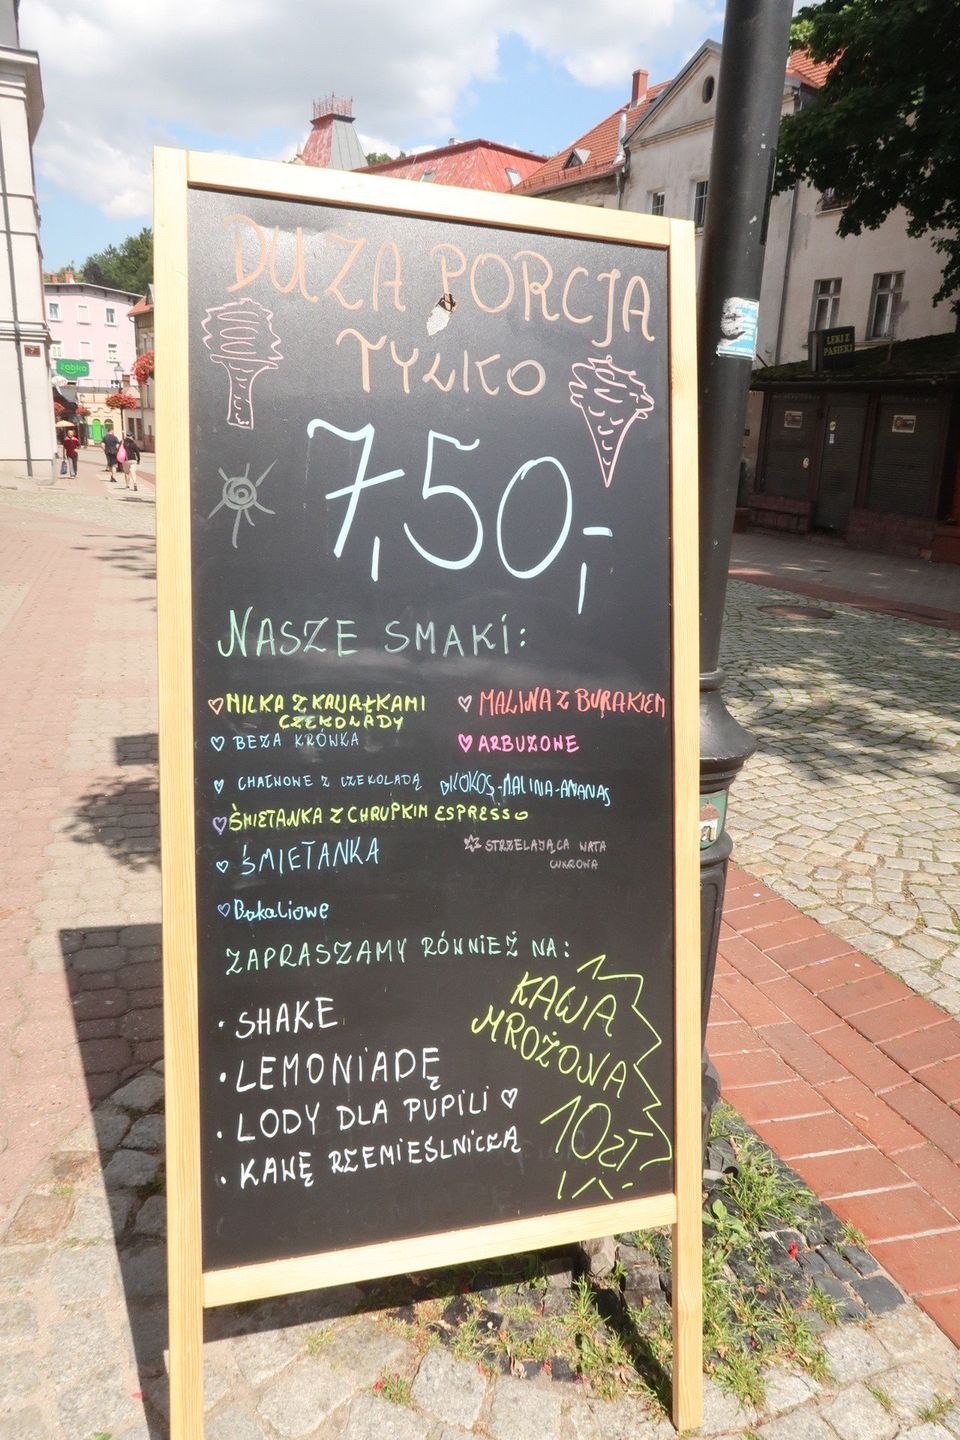 DUŻA PORCJA
TYLKO
7,50,-
NASZE SMAKI:
MILKA Z KAWAŁKAMI
CZEKOLADY
BEZA KRÓWKA
CHAŁWOWE Z CZEKOLADĄ
ŚMIETANKA Z CHRUPKIM ESPRESSO
ŚMIETANKA
Bakaliowe
MALINA Z BURAKIEM
ARBUZONE
KOKOS-MALINA-ANANAS
STRZELAJĄCA WATA
CUKROWA
ZAPRASZAMY RÓWNIEŻ NA:
• SHAKE
• LEMONIADĘ
• LODY DLA PUPILI
• KAWĘ RZEMIEŚLNICZĄ
KAWA
MROŻONA
10zł
LEKI Z
PASIEKI
żabka
7